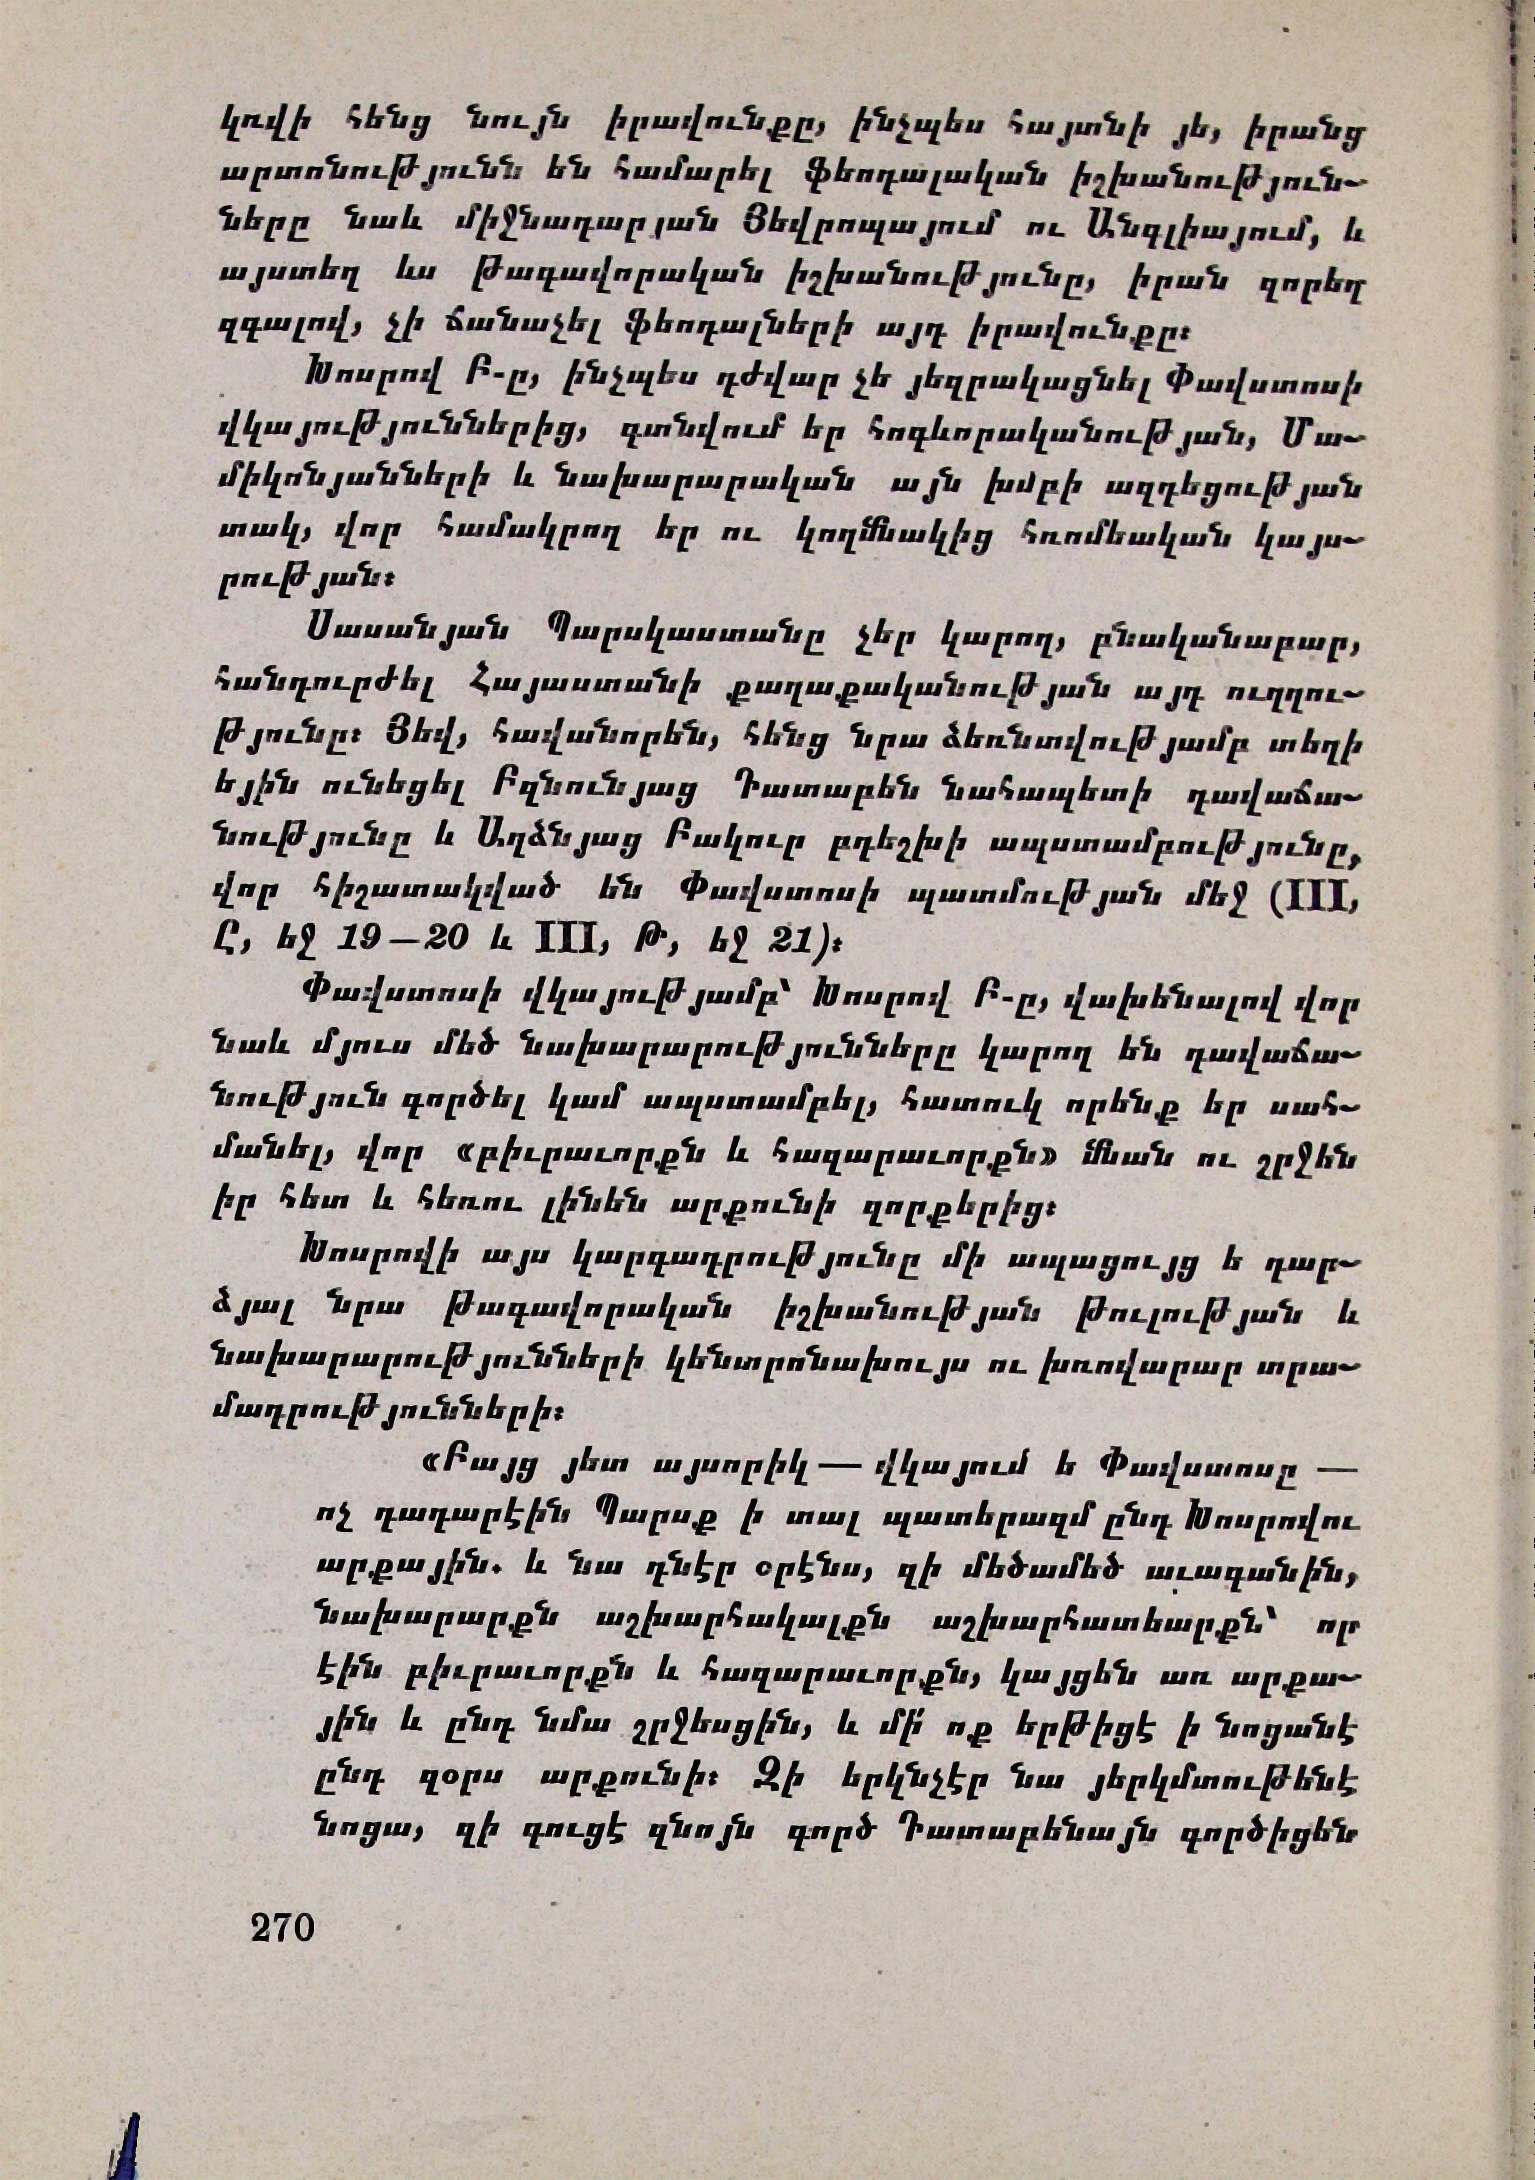 կռվի հենց նույն իրավունքը, ինչպես հայտնի յե, իրանց
արտոնությունն են համարել ֆեոդալական իշխանություն-
ները նաև միջնադարյան Յեվրոպայում ու Անգլիայում, և
այստեղ ևս թագավորական իշխանությունը, իրան զորեղ
զգալով, չի ճանաչել ֆեոդալների այդ իրավունքը։
Խոսրով Բ-ը, ինչպես դժվար չե յեզրակացնել Փավստոսի
վկայություններից, գտնվում եր հոգևորականության, Մա-
միկոնյանների և նախարարական այն խմբի ազդեցության
տակ, վոր համակրող եր ու կողմնակից հռոմեական կայս-
րության։
Սասանյան Պարսկաստանը չեր կարող, բնականաբար,
հանդուրժել Հայաստանի քաղաքականության այդ ուղղու-
թյունը։ Յեվ, հավանորեն, հենց նրա ձեռնտվությամբ տեղի
եյին ունեցել Բզնունյաց Դատաբեն նահապետի դավաճա-
նությունը և Աղձնյաց Բակուր բդեշխի ապստամբությունը,
վոր հիշատակված են Փավստոսի պատմության մեջ (III,
Ը, եջ 19—20 և III, Թ, եջ 21)։
Փավստոսի վկայությամբ՝ Խոսրով Բ-ը, վախենալով վոր
նաև մյուս մեծ նախարարությունները կարող են դավաճա-
նություն գործել կամ ապստամբել, հատուկ որենք եր սահ-
մանել, վոր «բիւրաւորքն և հազարաւորքն» մնան ու շրջեն
իր հետ և հեռու լինեն արքունի զորքերից։
Խոսրովի այս կարգադրությունը մի ապացույց ե դար-
ձյալ նրա թագավորական իշխանության թուլության և
նախարարությունների կենտրոնախույս ու խռովարար տրա-
մադրությունների։
«Բայց յետ այսորիկ — վկայում ե Փավստոսը —
ոչ դադարէին Պարսք ի տալ պատերազմ ընդ Խոսրովու
արքային. և նա դնէր օրէնս, զի մեծամեծ աւագանին,
նախարարքն աշխարհակալքն աշխարհատեարքն՝ որ
էին բիւրաւորքն և հազարաւորքն, կայցեն առ արքա-
յին և ընդ նմա շրջեսցին, և մի՛ ոք երթիցէ ի նոցանէ
ընդ զօրս արքունի։ Զի երկնչէր նա յերկմտութենէ
նոցա, զի գուցէ զնոյն գործ Դատաբենայն գործիցեն
270